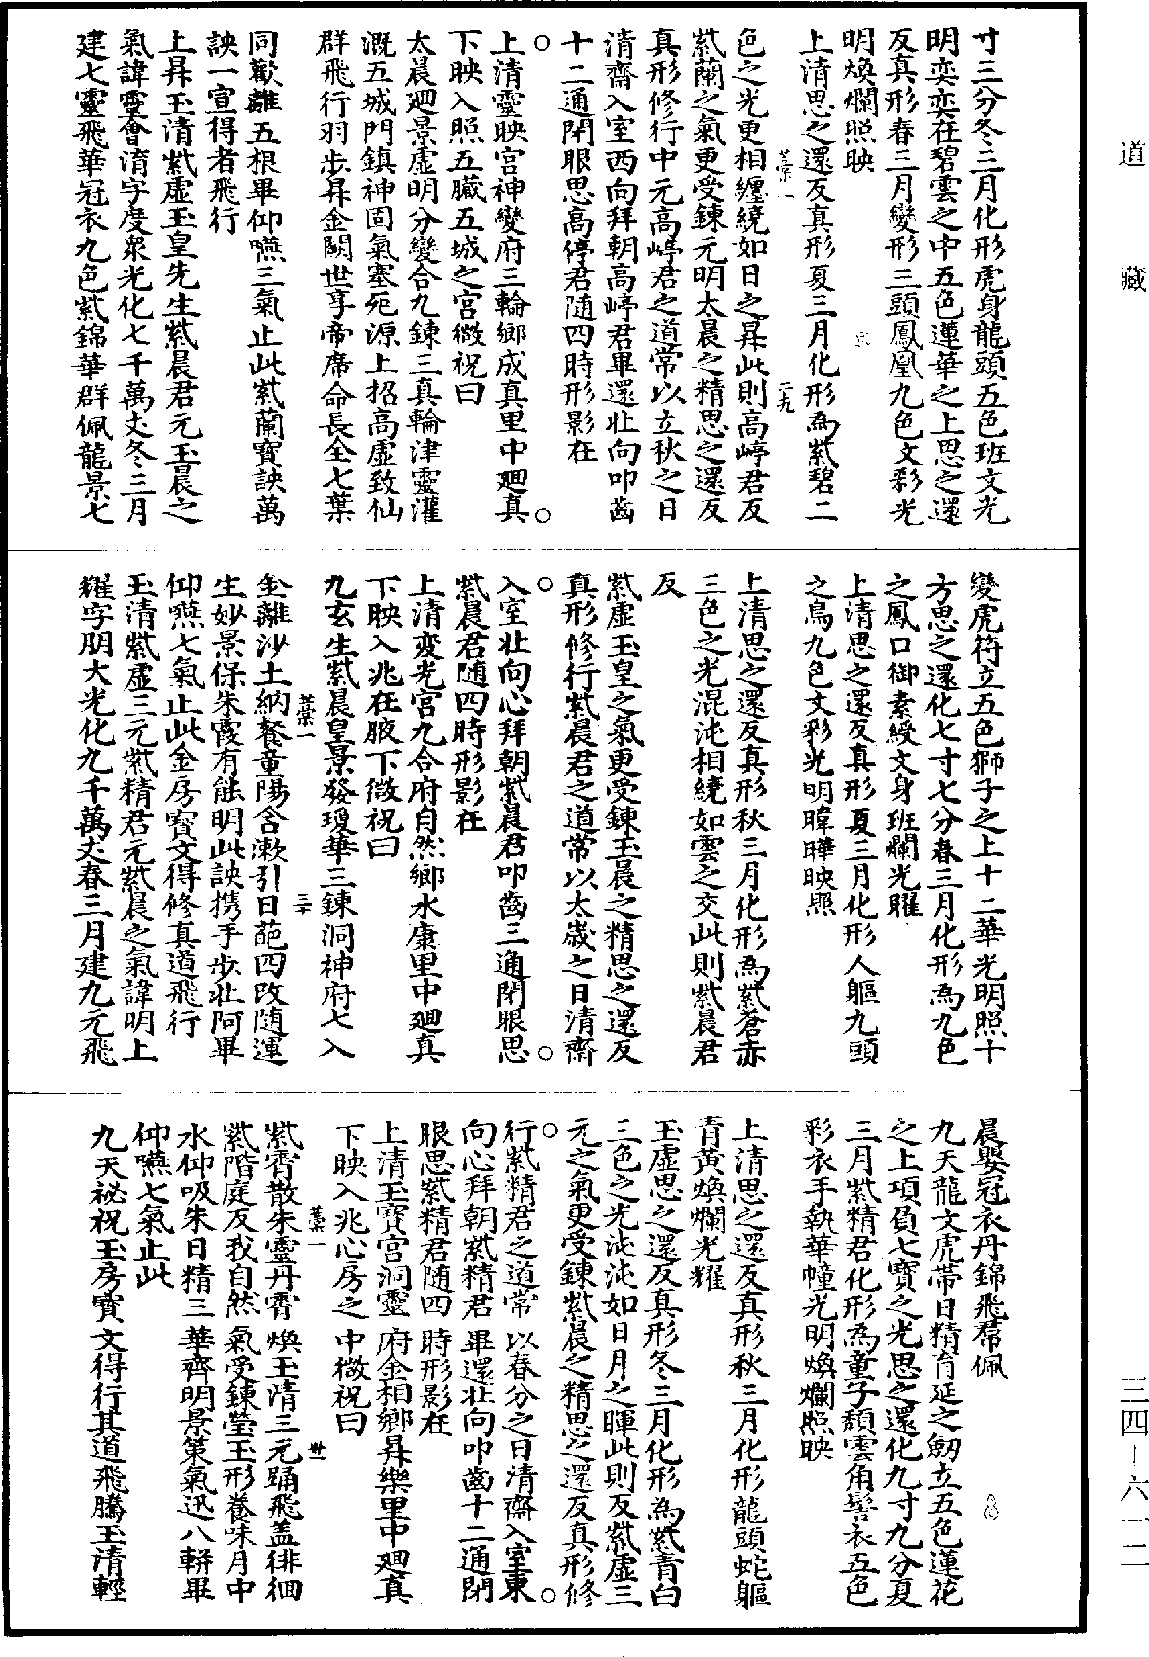 道藏
寸三分冬三月化形虎身龍頭五色班文光
明奕奕在碧雲之中五色蓮華之上思之還
反真形春三月變形三頭鳳凰九色文彩光
明煥爛照映
上清思之還反真形夏三月化形為紫碧二
色之光更相纏繞如日之昇此則高崢君反
紫蘭之氣更受鍊元明太晨之精思之還反
真形修行中元高崢君之道常以立秋之日
清齋入室西向拜朝高崢君畢還北向叩齒
十二通閉眼思高停君随四時形影在
上清靈映宮神變府三輪鄉成真里中廻真
下映入照五臟五城之宮微祝曰
太晨廻景虛明分變合九鍊三真輪津靈灌
溉五城門鎮神固氣塞死源上招高虛致仙
群飛行羽步昇金闕世享帝席命長全七葉
同歡離五根畢仰嚥三氣止此紫蘭寶訣萬
訣一宣得者飛行
上昇玉清紫虛玉皇先生紫晨君元玉晨之
氣諱靈會淯字度衆光化七千萬丈冬三月
建七靈飛華冠衣九色紫錦華群佩龍景七
變虎符立五色獅子之上十二華光明照十
方思之還化七寸七分春三月化形為九色
之鳳口御素綬文身班爛光曜
上清思之還反真形夏三月化形人軀九頭
之鳥九色文彩光明暐曄映照
上清思之還反真形秋三月化形為紫蒼赤
三色之光混沌相繞如雲之交此則紫晨君
反
紫虛玉皇之氣更受鍊玉晨之精思之還反
真形修行紫晨君之道常以太歲之日清齋
入室北向心拜朝紫晨君叩齒三通閉眼思
紫晨君随四時形影在
上清変光宮九合府自然鄉水康里中廻真
下映入兆在腋下微祝曰
九玄生紫晨皇景發瓊華三鍊洞神府七入
金離沙土納養童陽含漱引日葩四攺随運
生妙景保朱霞有能明此訣携手步北阿畢
仰嚥七氣止此金房寶文得修真道飛行
玉清紫虛三元紫精君元紫晨之氣諱明上
耀字朋大光化九千萬丈春三月建九元飛
晨嬰冠衣丹錦飛帬佩
九天龍文虎帶日精育延之劒立五色蓮花
之上項負七寶之光思之還化九寸九分夏
三月紫精君化形為童子頹雲角髻衣五色
彩衣手執華幢光明煥爛照映
上清思之還反真形秋三月化形龍頭蛇軀
青黃煥爛光耀
玉虛思之還反真形冬三月化形為紫青白
三色之光沌沌如日月之暉此則反紫虛三
元之氣更受鍊紫晨之精思之還反真形修
行紫精君之道常以春分之日清齋入室東
向心拜朝紫精君畢還北向叩齒十二通閉
眼思紫精君随四時形影在
上清玉寶宮洞靈府金相鄉昇樂里中廻真
下映入兆心房之中微祝曰
紫霄散朱靈丹霄煥玉清三元踊飛盖徘徊
紫階庭反我自然氣受鍊瑩玉形養味月中
水仰吸朱日精三華齊明景策氣迅八軿畢
仰嚥七氣止此
九天祕祝玉房寶文得行其道飛騰玉清輕
三四—六一二